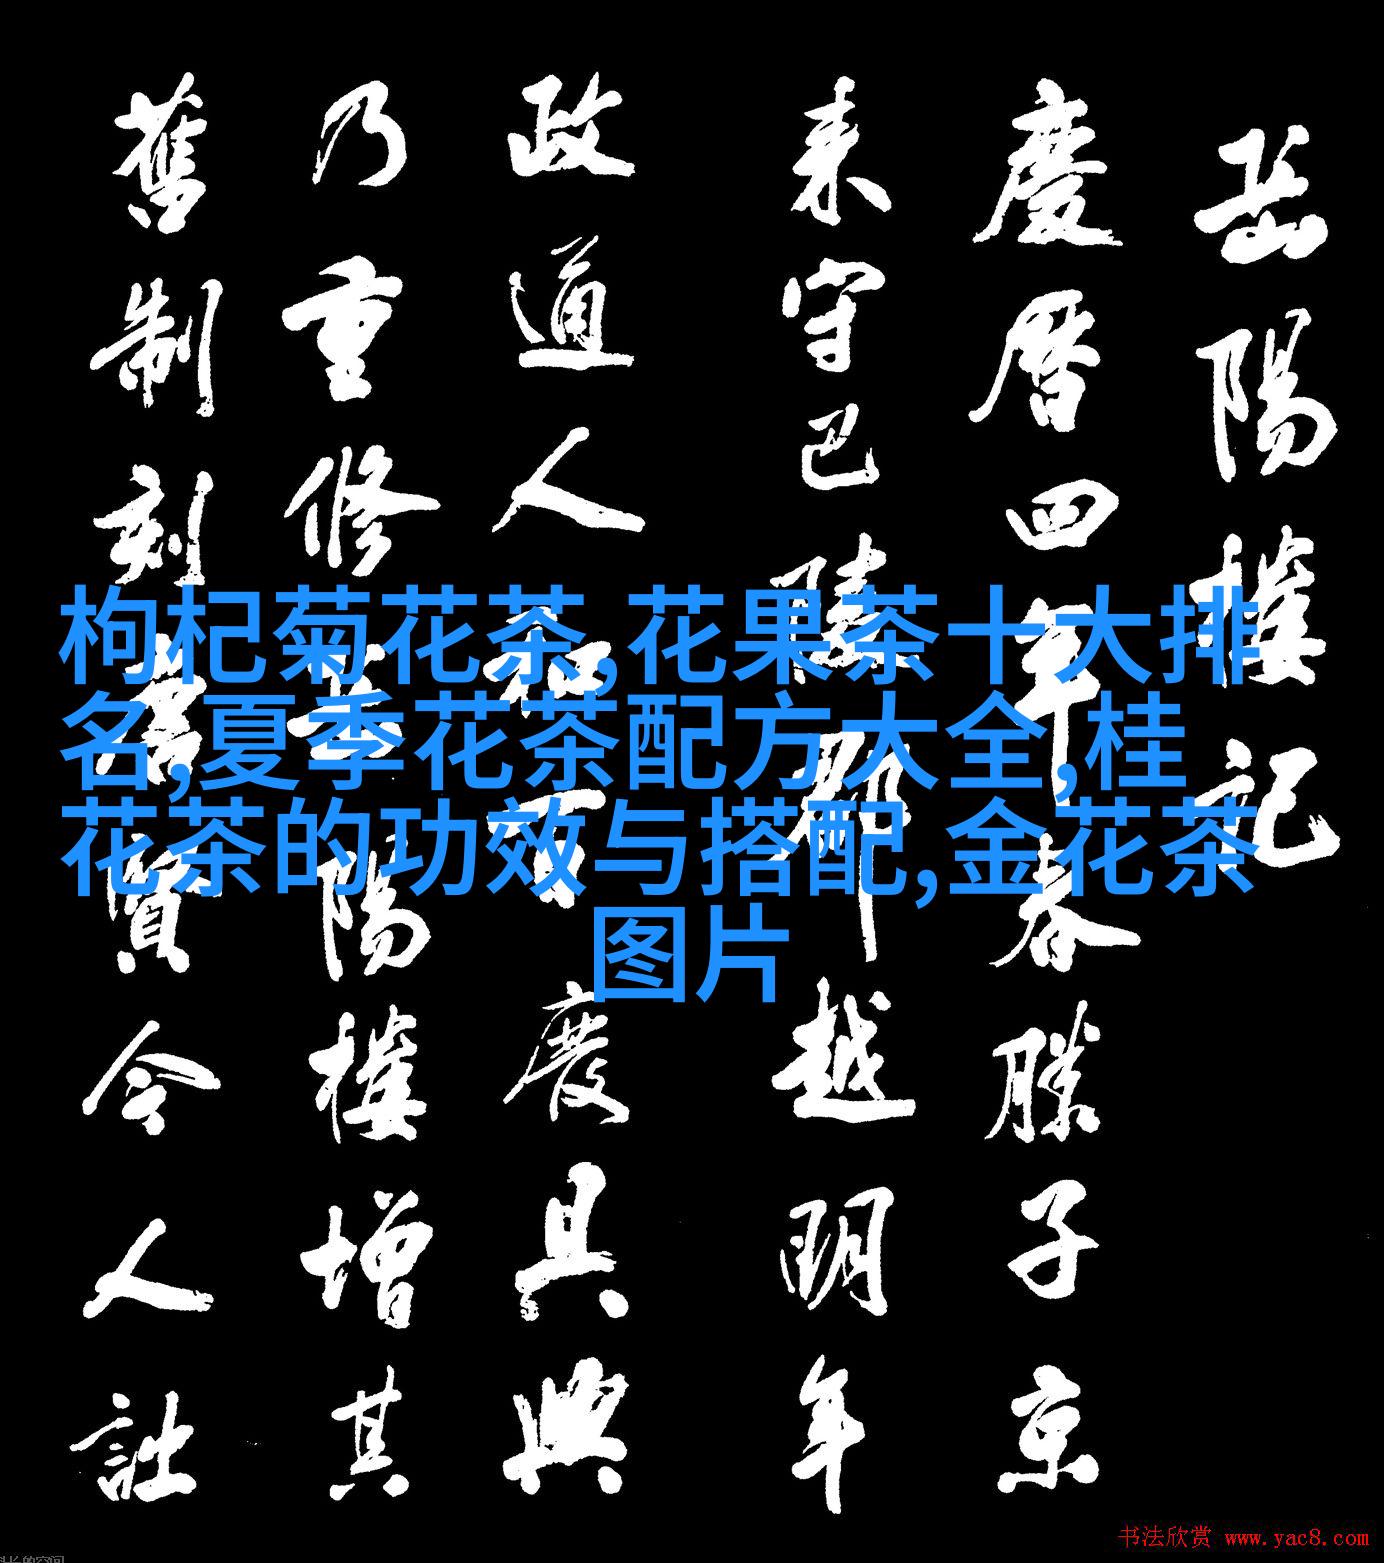 岳陽樓記
慶曆四年春滕子京
来守巴陵郡越明年
政通人和百廢具興
乃重修岳陽樓增其
舊制刻唐賢今人詩
枸杞菊花茶,花果茶十大排
名,夏季花茶配方大全,桂
花茶的功效与搭配,金花茶
图片
书法欣赏 www.yac8.com